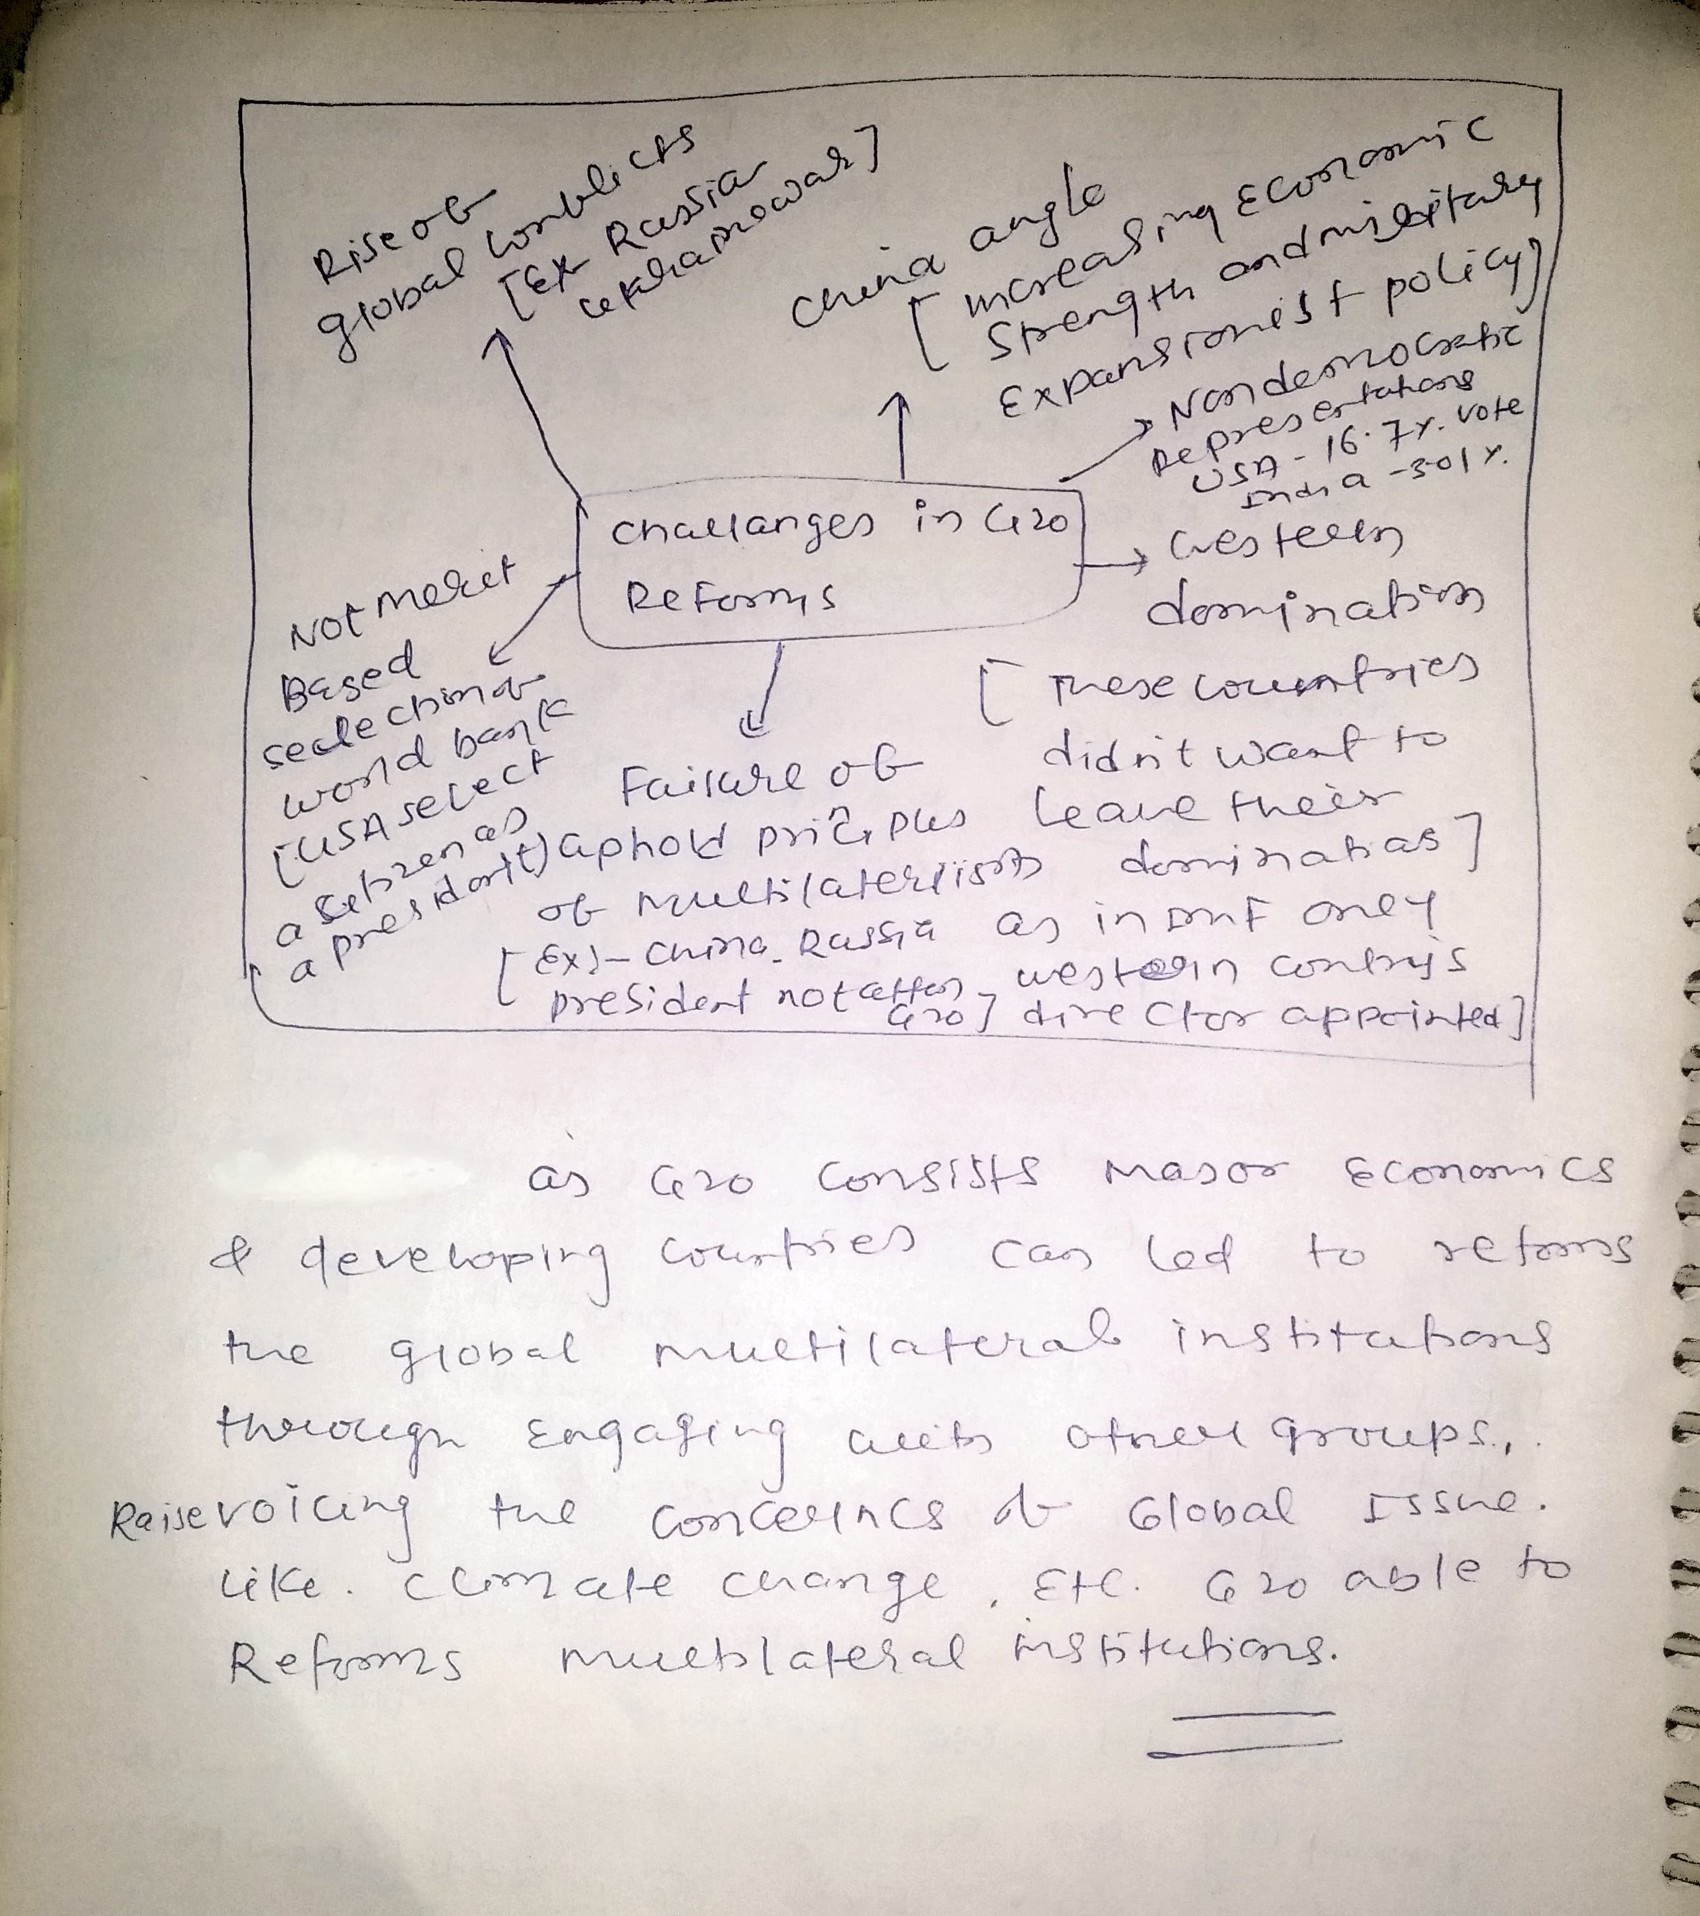 Rise of
global conflicts
[Ex- Russia
ukraine war]
China angle
[increasing Economic
Strength and military
Expansionist policy]
Non democratic
Representations
USA - 16.7%. vote
India - 3.01%.
Challanges in G20
Reforms
western
domination
[These countries
didn't want to
leave their
dominations]
as in IMF only
western contrys
director appointed]
Not Merit
Based
selection of
world bank
[USA select
a citizen as
a president]
Failure of
uphold priciples
of multilaterlism
[Ex)- China, Russia
president not atten
G20]
as G20 consists major Economics
& developing countries can led to reforms
the global multilateral institutions
through Engaging with other groups,.
Raise voicing the concerncs of Global Issue.
like. climate change, Etc. G20 able to
Reforms multilateral institutions.